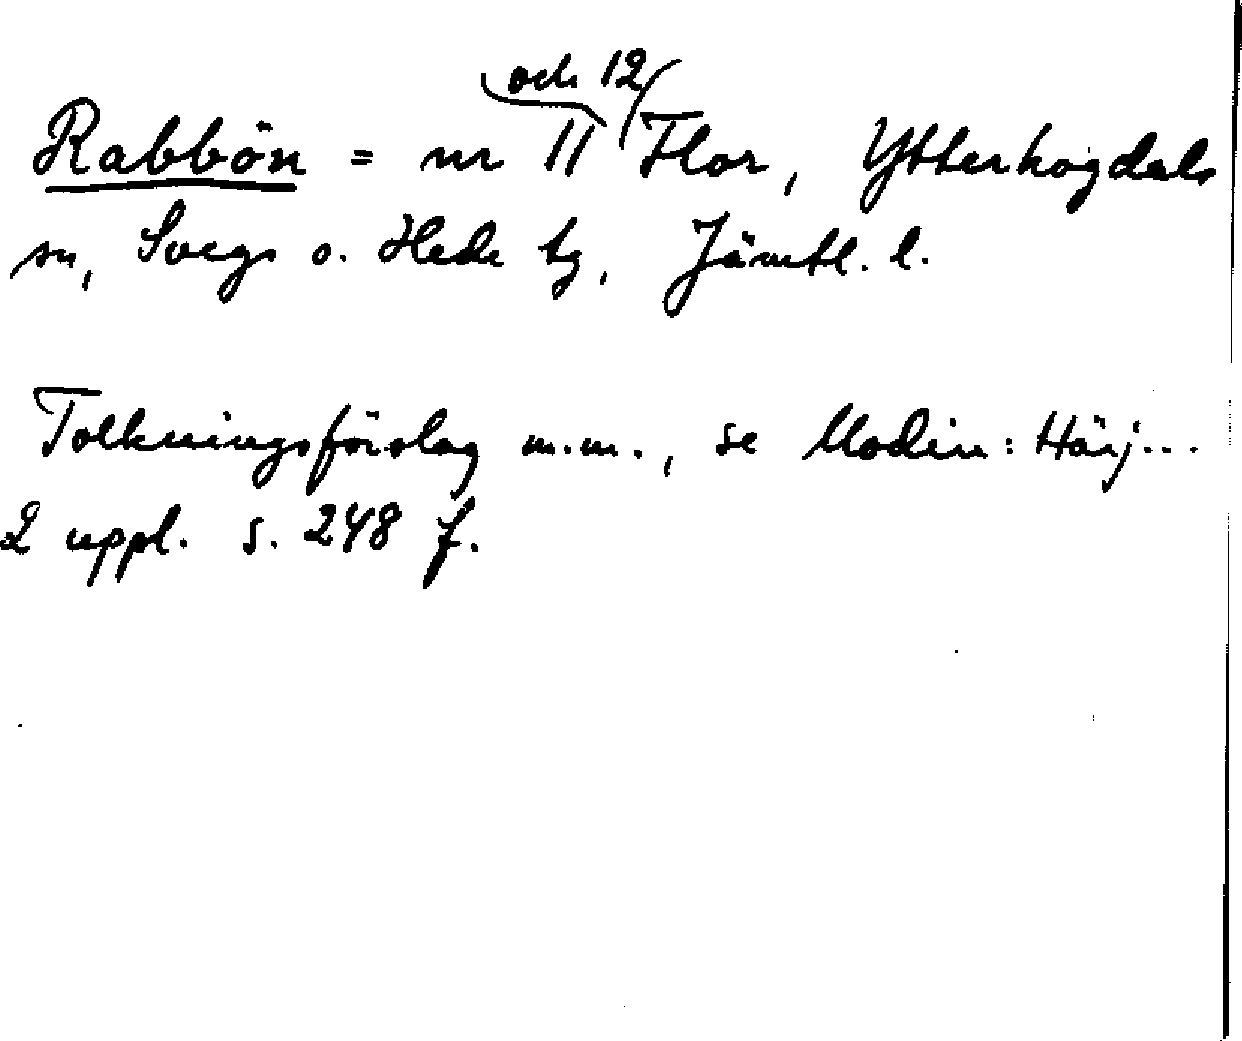 Rabbön = nr 11 och 12 Flor, Ytterhogdals
sn, Svegs o. Hede tg, Jämtl. l.
Tolkningsförslag m.m., se Modin: Härj...
2 uppl. s. 248 f.